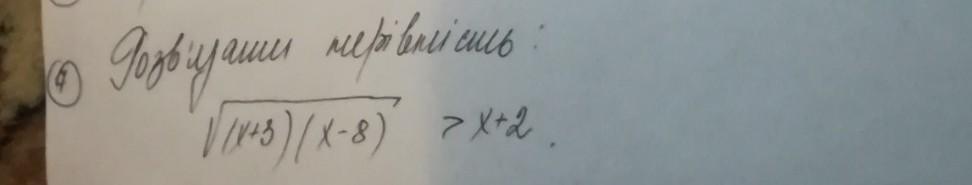 ④ Розв'язати нерівність:
√((x+3)(x-8)) > x+2.